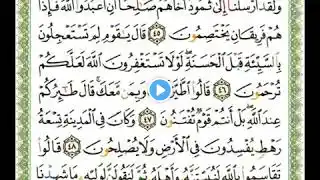 ولقد أرسلنا إلى ثمود أخاهم صلحا أن اعبدوا الله فإذا
هم فريقان يختصمون ٤٥ قال يقوم لم تستعجلون
بالسيئة قبل الحسنة لولا تستغفرون الله لعلكم
ترحمون ٤٦ قالوا اطيرنا بك وبمن معك قال طئركم
عند الله بل أنتم قوم تفتنون ٤٧ وكان في المدينة تسعة
رهط يفسدون في الأرض ولا يصلحون ٤٨ قالوا
تقاسموا بالله لنبيتنه وأهله ثم لنقولن لوليه ما شهدنا